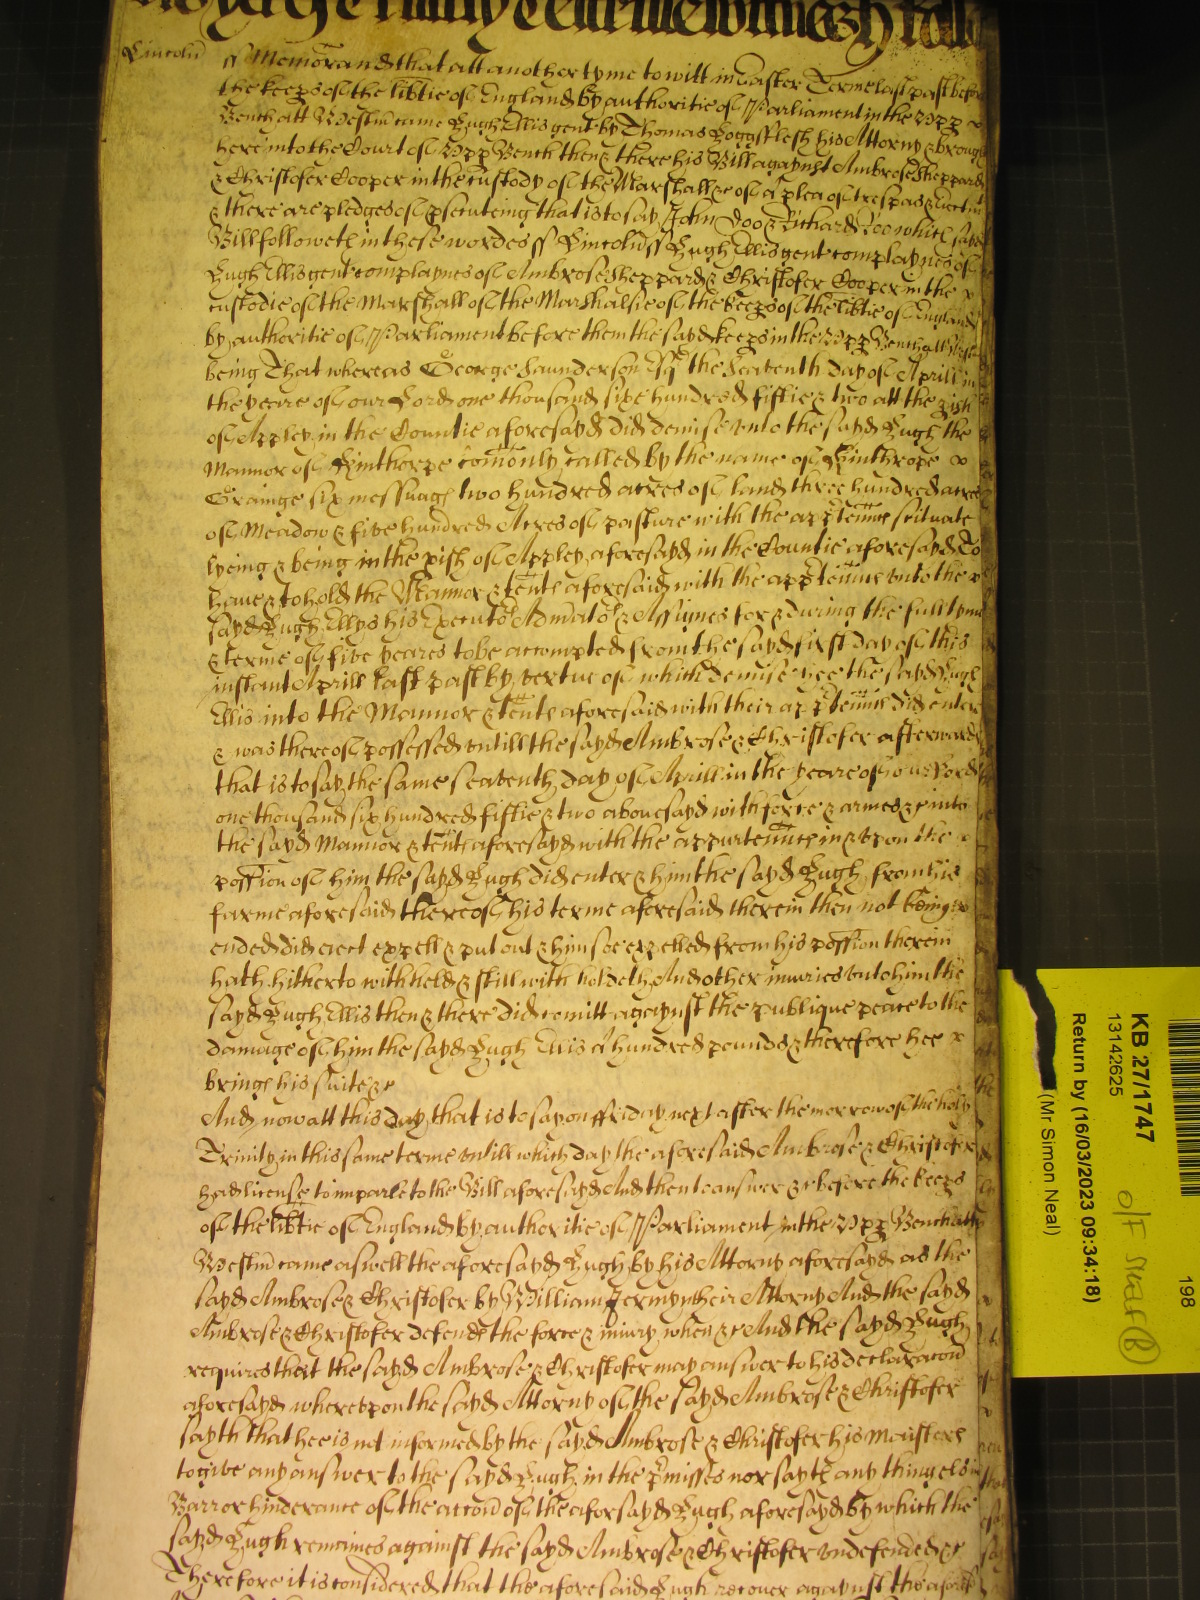 Lincoln ss Memorand that att another tyme to witt in Easter Terme last past before
the keeps of the libtie of England by authoritie of Parliament in the Upp
Bench att Westm came Hugh Ellis gent by Thomas Hoggsflesh his Attorny & brought
here into the Court of Upp Bench then & there his Bill agaynst Ambrose Sheppard
& Christofer Cooper in the custody of the Marshall &c of a plea of trespas & eiectm
& there are pledges of psecuteing that is to say John Doo & Richard Roo which sayd
Bill followeth in these wordes ss Lincoln ss Hugh Ellis gent complaynes of
Hugh Ellis gent complaynes of Ambrose Sheppard & Christofer Cooper in the
custodie of the Marshall of the Marshalsie of the keeps of the libtie of England
by authoritie of Parliament before them the sayd keeps in the Upp Bench att Westm
being That whereas George Saunderson Esq the seaventh day of Aprill in
the yeare of our Lord one thousand sixe hundred fiftie & two att the pish
of Appley in the Countie aforesayd did demise unto the sayd Hugh the
Mannor of comonly called by the name of
Grainge six messuags two hundred acres of land three hundred acres
of Meadow & five hundred Acres of pasture with the apptennc scituate
lyeing & being in the pish of Appley aforesayd in the Countie aforesayd To
have & to hold the Mannor & tents aforesaid with the apptennc unto the
sayd Hugh Ellys his Executo Admato & Assignes for & during the full tyme
& terme of five yeares to be accompted from the sayd first day of this
instant Aprill last past by vertue of which demise hee the sayd Hugh
Ellis into the Mannor & tents aforesaid with their apptennc did enter
& was thereof possessed untill the sayd Ambrose & Christofer afterwards
that is to say the same seaventh day of Aprill in the yeare of our Lord
one thousand six hundred fiftie & two abovesayd with force & armes &c into
the sayd Mannor & tents aforesayd with the appurtennce in & upon the
possion of him the sayd Hugh did enter & him the sayd Hugh from his
farme aforesaid thereof his terme aforesaid therein then not being
ended did eiect expell & put out & him soe expelled from his possion therein
hath hitherto withheld & still with holdeth And other iniuries unto him the
sayd Hugh Ellis then & there did comitt agaynst the publique peace to the
damage of him the sayd Hugh Ellis a hundred pounds & therefore hee
brings his suite &c
And now att this day that is to say on ffriday next after the morrow of the holy
Trinity in this same terme untill which day the aforesaid Ambrose & Christofer
had license to imparle to the Bill aforesayd And then to answer &c before the keeps
of the libtie of England by authoritie of Parliament in the Upp Bench att
Westm came aswell the aforesayd Hugh by his Attorny aforesayd as the
sayd Ambrose & Christofer by William Jermyn their Attorny And the sayd
Ambrose & Christofer defende the force & iniury when &c And the sayd Hugh
requires that the sayd Ambrose & Christofer may answer to his declaracon
aforesayd whereupon the sayd Attorny of the sayd Ambrose & Christofer
sayth that hee is not informed by the sayd Ambrose & Christofer his Maisters
to give any answer to the sayd Hugh in the pmisses nor sayth any thing els in
Barr or hinderance of the accon of the aforsayd Hugh aforesayd by which the
sayd Hugh remaines against the sayd Ambrose & Christofer undefended &c
Therefore it is considered that the aforesaid Hugh recover agaynst the aforesd
KB 27/1747
13142625
Return by (16/03/2023 09:34:18)
(Mr Simon Neal)
198
O/F Shelf B